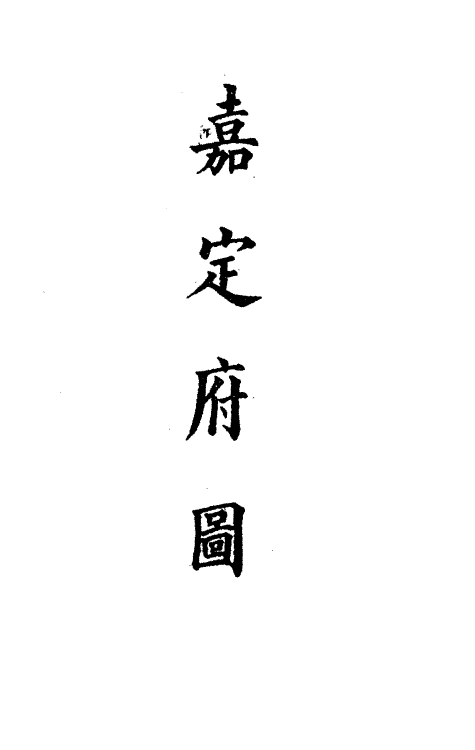 嘉定府圖